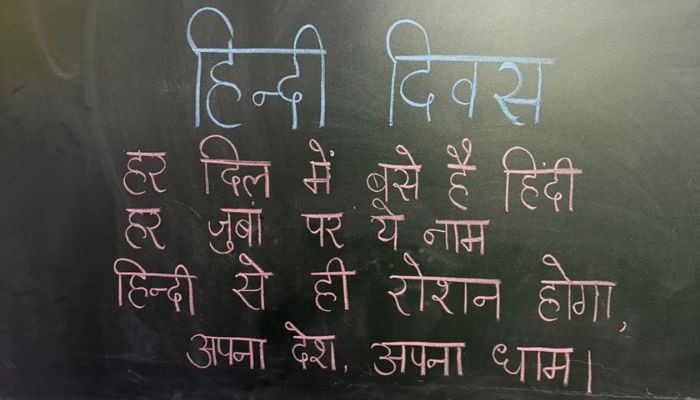 हिन्दी दिवस
हर दिल में बसे है हिंदी
हर जुबां पर ये नाम
हिन्दी से ही रोशन होगा,
अपना देश, अपना धाम।